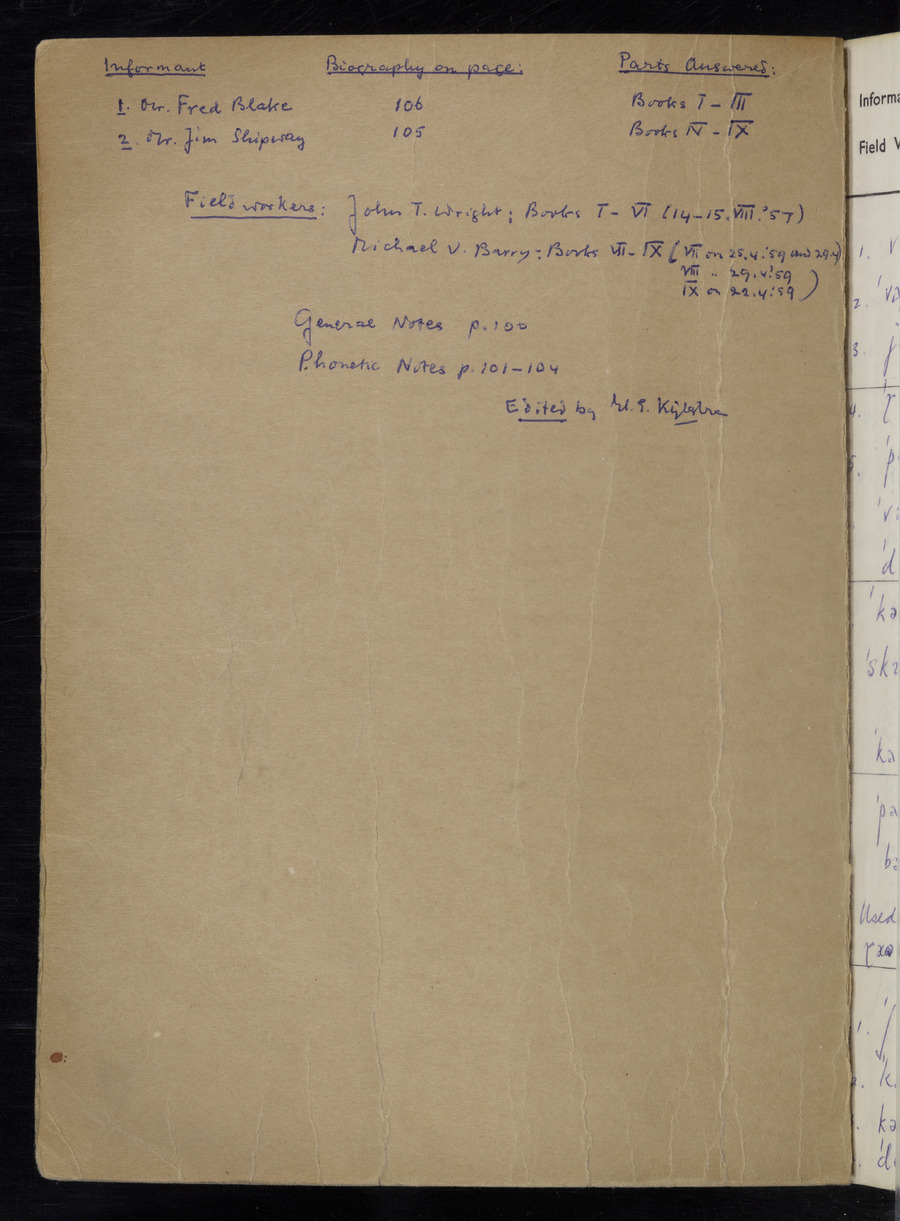 Informant Biography on page: Parts Answered:
1. Mr. Fred Blake 106 Books I – III
2. Mr. Jim Shipway 105 Books IV – IX
Fieldworkers: John T. Wright: Books I – VI (14–15.VIII.'57)
Michael V. Barry: Books VII – IX (VII on 25.4.'59 and 29.4)
VIII " 29.4.'59
IX on 22.4.'59)
General Notes p. 100
Phonetic Notes p. 101–104
Edited by
Informa
Field
1.
2.
3.
4.
'kə
'ska
'ka
'pa
Used
1.
kə